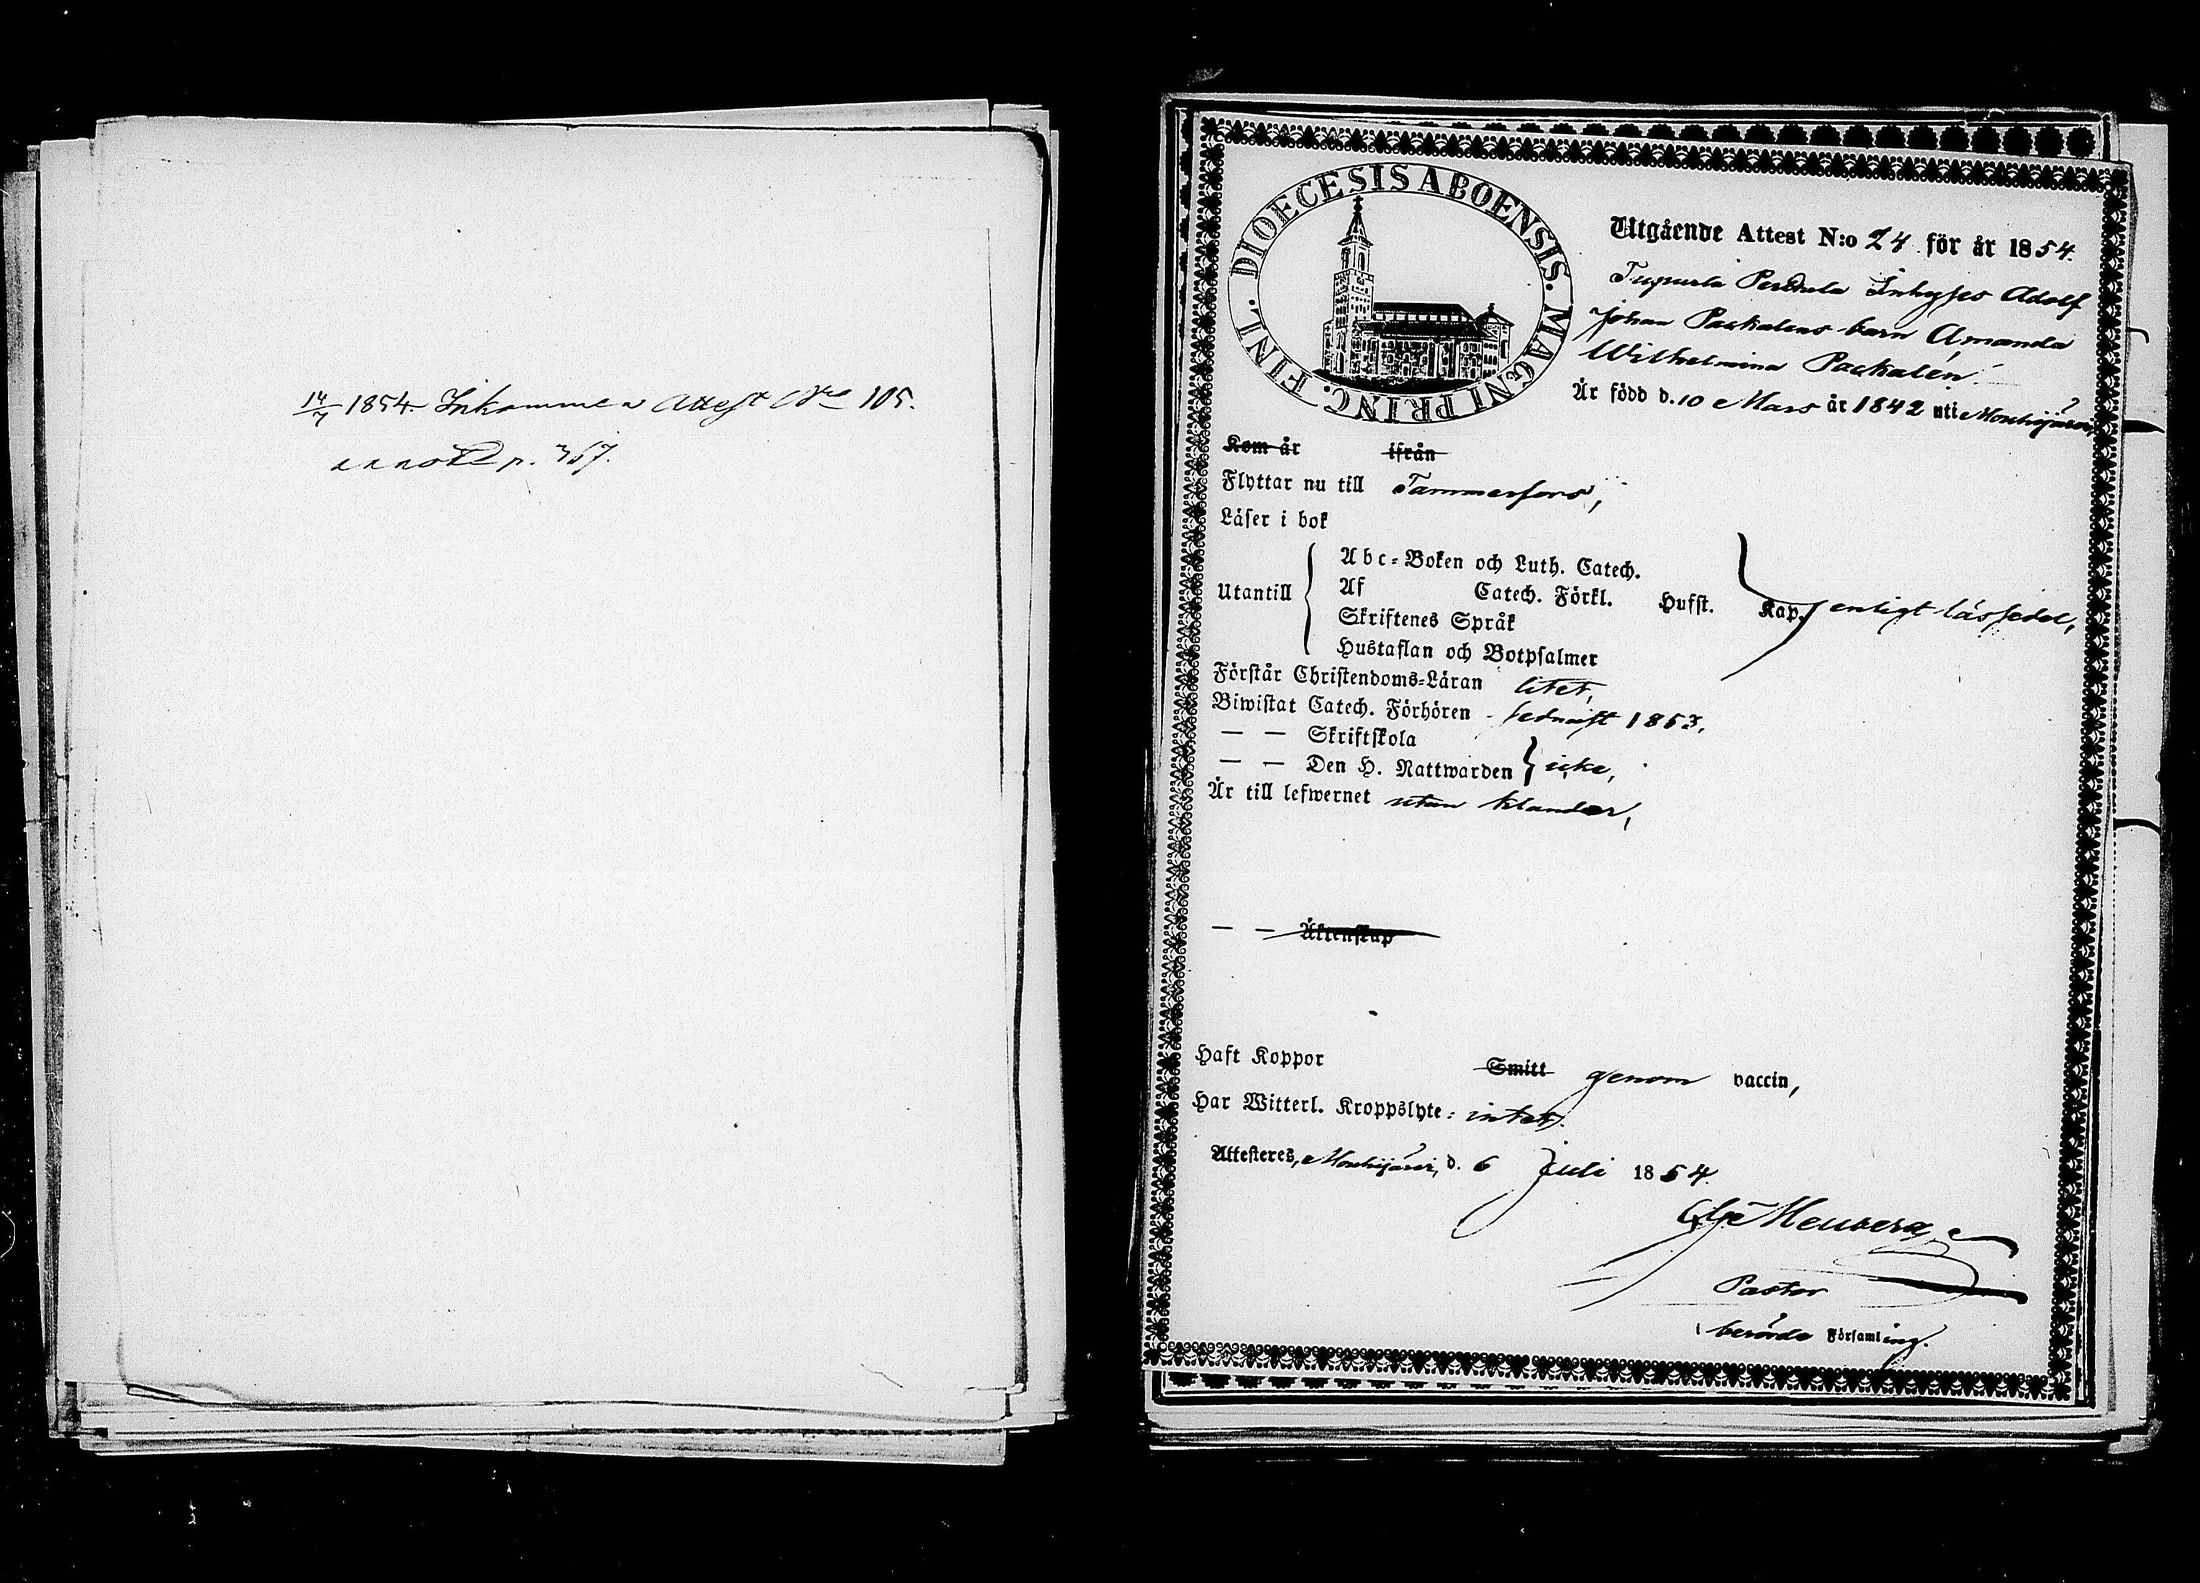 14/7 1854. Inkommen Attest N:o 105.
annot. p. 367.
DIOECESIS ABOENSIS. MAGNI PRINC. FINL.
Utgående Attest N:o 24 för år 1854.
Inhyses Adolf
Johan Paskalens barn Amanda
Wilhelmina Paskalén.
Är född d. 10 Mars år 1842 uti Mouhijärvi,
Kom år ifrån
Flyttar nu till Tammerfors,
Läser i bok
Utantill
Abc-Boken och Luth. Catech.
Af Catech. Förkl. Husst. Kap. enligt lässedel,
Skriftenes Språk
Hustaflan och Botpsalmer
Förstår Christendoms-Läran litet,
Biwistat Catech. Förhören sednast 1853,
— — Skriftskola
— — Den H. Nattwarden icke,
Är till lefwernet utan klander,
— — Äktenskap
Haft Koppor Smitt genom vaccin,
Har Witterl. Kroppslyte: intet.
Attesteres, Mouhijärvi, d. 6 Juli 1854.
Pastor
i berörde Församling.